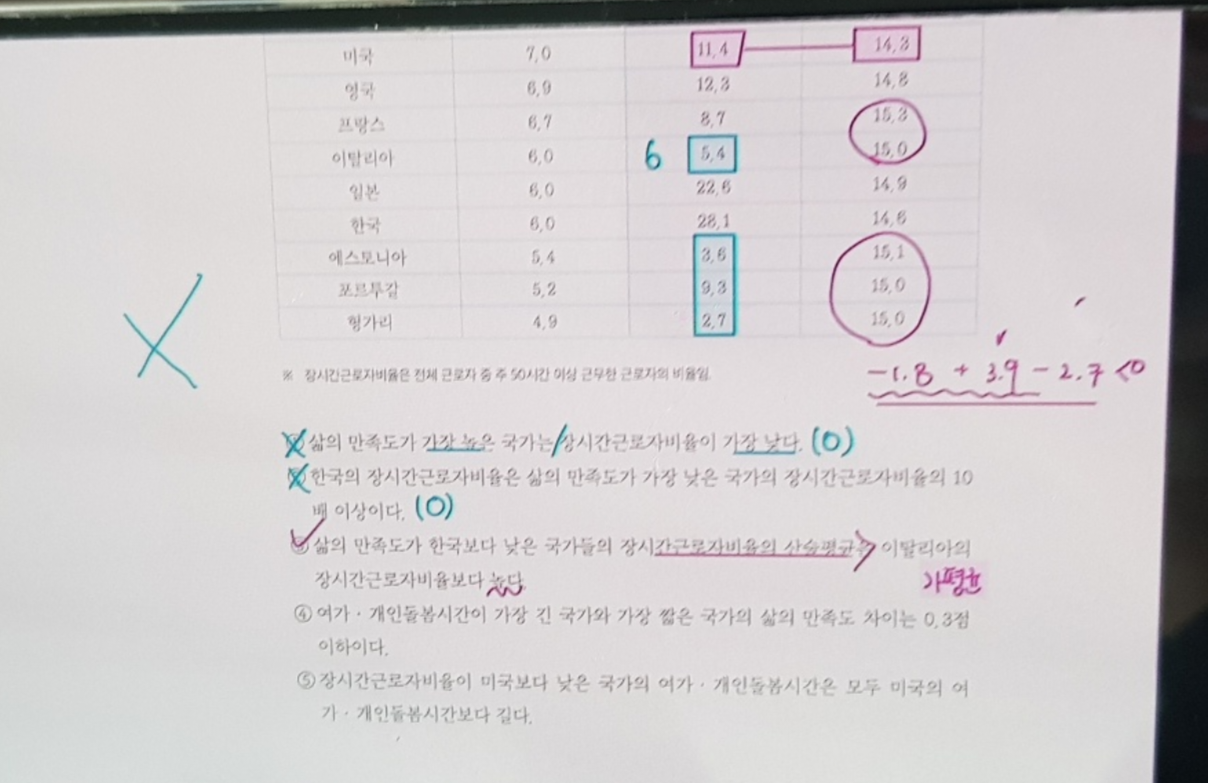 미국 7.0 11.4 14.3
영국 6.9 12.3 14.8
프랑스 6.7 8.7 15.3
이탈리아 6.0 6 5.4 15.0
일본 6.0 22.6 14.9
한국 6.0 28.1 14.6
에스토니아 5.4 3.6 15.1
포르투갈 5.2 9.3 15.0
헝가리 4.9 2.7 15.0
※ 장시간근로자비율은 전체 근로자 중 주 50시간 이상 근무한 근로자의 비율임.
-1.8 + 3.9 - 2.7 <0
① 삶의 만족도가 가장 높은 국가는 장시간근로자비율이 가장 낮다. (O)
② 한국의 장시간근로자비율은 삶의 만족도가 가장 낮은 국가의 장시간근로자비율의 10
배 이상이다. (O)
③ 삶의 만족도가 한국보다 낮은 국가들의 장시간근로자비율의 산술평균은 이탈리아의
장시간근로자비율보다 높다. 가평균
④ 여가·개인돌봄시간이 가장 긴 국가와 가장 짧은 국가의 삶의 만족도 차이는 0.3점
이하이다.
⑤ 장시간근로자비율이 미국보다 낮은 국가의 여가·개인돌봄시간은 모두 미국의 여
가·개인돌봄시간보다 길다.